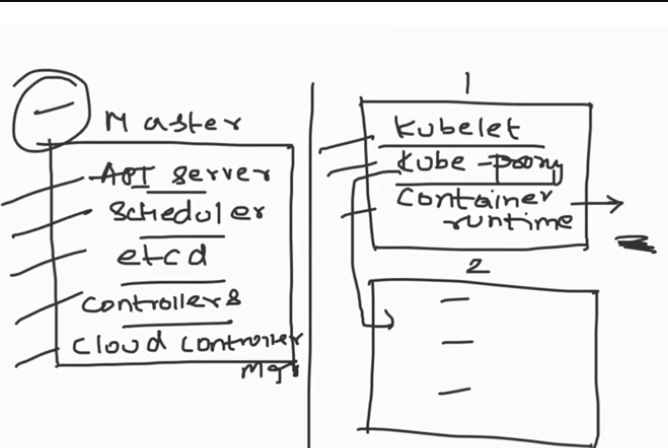 Master
API server
scheduler
etcd
controllers
cloud controller
Mgr
1
Kubelet
Kube-proxy
Container
runtime
2